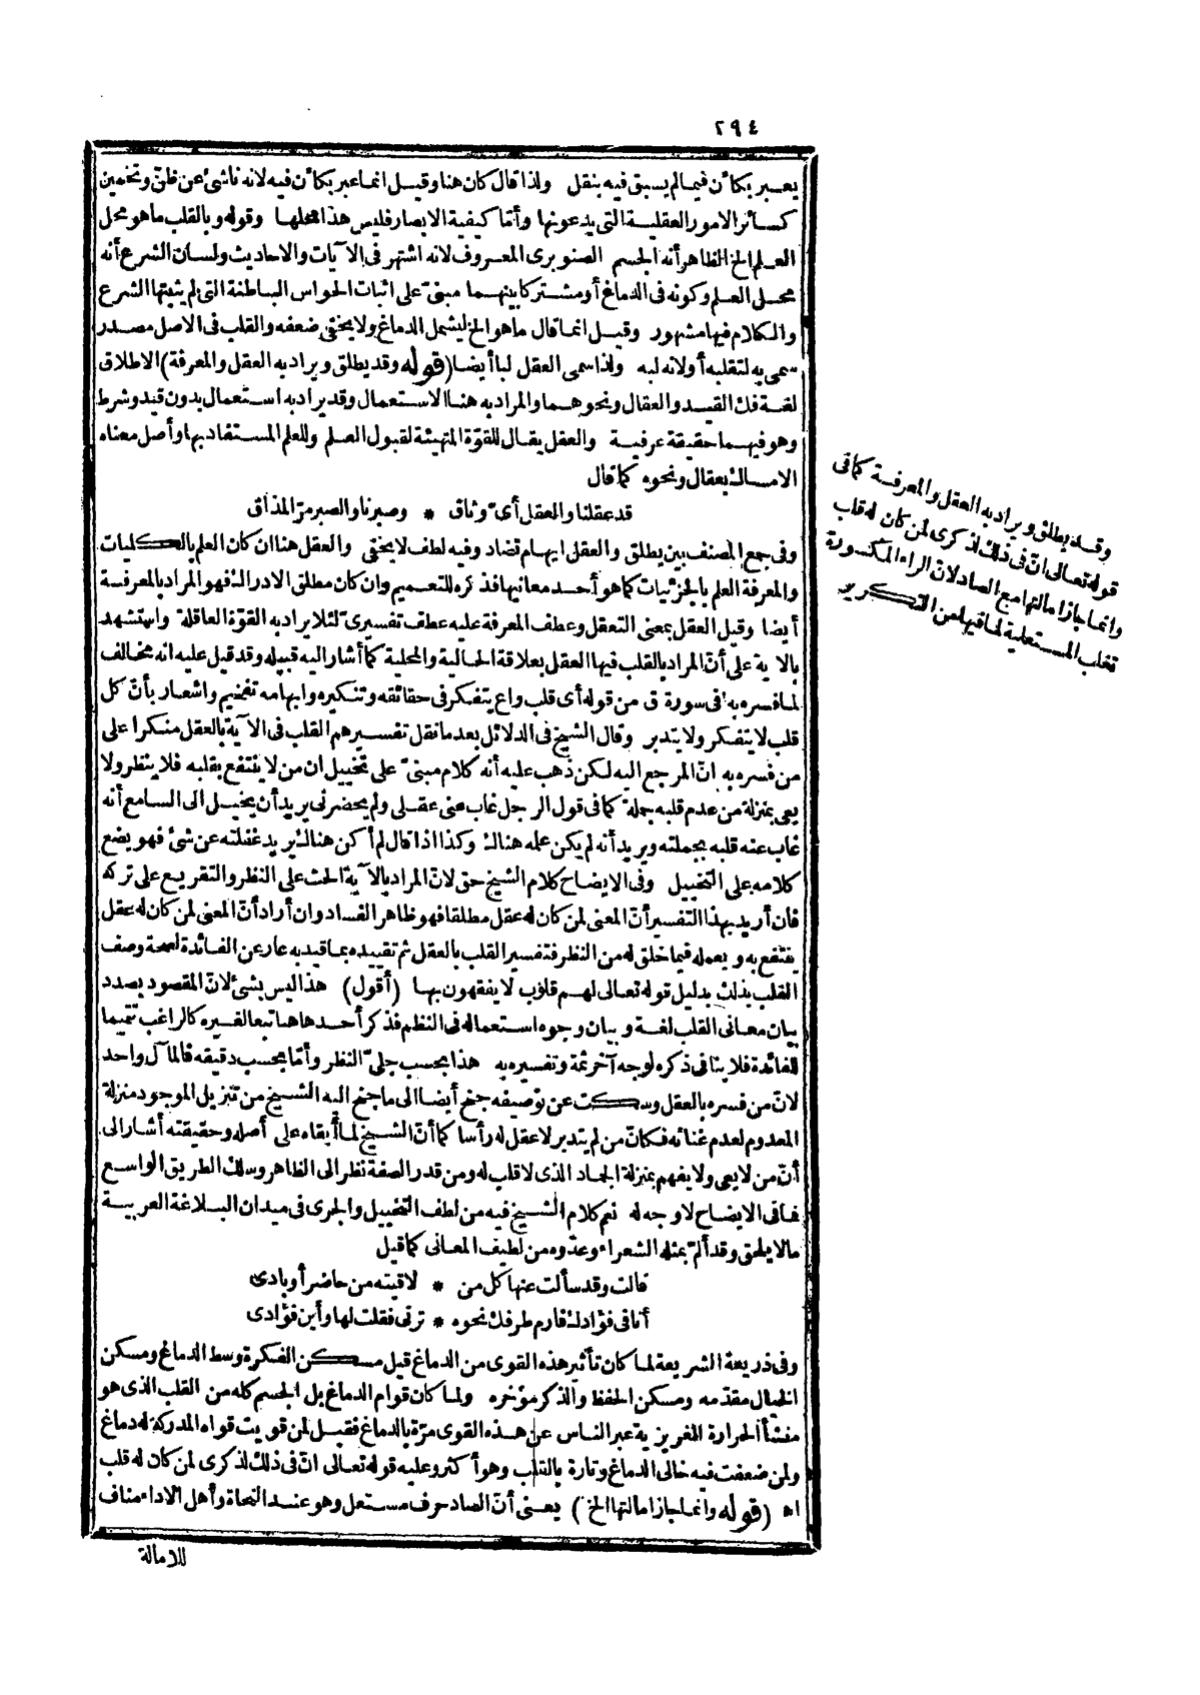 ٢٩٤
يعبر بكأن فيما لم يسبق فيه بنقل ولذا قال كان هنا وقيل انما عبر بكأن فيه لانه ناشئ عن ظن وتخمين
كسائر الامور العقلية التى يدعونها وأما كيفية الابصار فليس هذا محلها وقوله وبالقلب ما هو محل
العلم الخ الظاهر أنه الجسم الصنوبرى المعروف لانه اشتهر فى الآيات والاحاديث ولسان الشرع أنه
محل العلم وكونه فى الدماغ أو مشتركا بينهما مبنىّ على اثبات الحواس الباطنة التى لم يثبتها الشرع
والكلام فيها مشهور وقيل انما قال ما هو الخ ليشمل الدماغ ولا يخفى ضعفه والقلب فى الاصل مصدر
سمى به لتقلبه أو لانه لبه ولذا سمى العقل لبا أيضا (قوله وقد يطلق ويراد به العقل والمعرفة) الاطلاق
لغة فك القيد والعقال ونحوهما والمراد به هنا الاستعمال وقد يراد به استعمال بدون قيد وشرط
وهو فيهما حقيقة عرفية والعقل يقال للقوّة المتهيئة لقبول العلم وللعلم المستفاد بها وأصل معناه
الامساك بعقال ونحوه كما قال
قد عقلنا والعقل أىّ وثاق * وصبرنا والصبر مرّ المذاق
وفى جمع المصنف بين يطلق والعقل ايهام تضاد وفيه لطف لا يخفى والعقل هنا ان كان العلم بالكليات
والمعرفة العلم بالجزئيات كما هو أحد معانيها فذكره للتعميم وان كان مطلق الادراك فهو المراد بالمعرفة
أيضا وقيل العقل بمعنى التعقل وعطف المعرفة عليه عطف تفسيرىّ لئلا يراد به القوّة العاقلة واستشهد
بالاية على أنّ المراد بالقلب فيها العقل بعلاقة الحالية والمحلية كما أشار اليه قبيله وقد قيل عليه انه مخالف
لما فسره به فى سورة ق من قوله أى قلب واع يتفكر فى حقائقه وتنكيره وابهامه تفخيم واشعار بأنّ كل
قلب لا يتفكر ولا يتدبر وقال الشيخ فى الدلائل بعد ما نقل تفسيرهم القلب فى الآية بالعقل منكرا على
من فسره به انّ المرجع اليه لكن ذهب عليه أنه كلام مبنىّ على تخييل ان من لا ينتفع بقلبه فلا ينظر ولا
يعى بمنزلة من عدم قلبه جملة كما فى قول الرجل غاب عنى عقلى ولم يحضرنى يريد أن يخيل الى السامع أنه
غاب عنه قلبه بجملته ويريد أنه لم يكن علمه هناك وكذا اذا قال لم أكن هناك يريد غفلته عن شئ فهو يضع
كلامه على التخييل وفى الايضاح كلام الشيخ حق لانّ المراد بالآية الحث على النظر والتقريع على تركه
فان أريد بهذا التفسير أنّ المعنى لمن كان له عقل مطلقا فهو ظاهر الفساد وان أراد أنّ المعنى لمن كان له عقل
ينتفع به ويعمله فيما خلق له من النظر فتفسير القلب بالعقل ثم تقييده بما قيد به عار عن الفائدة لصحة وصف
القلب بذلك بدليل قوله تعالى لهم قلوب لا يفقهون بها (أقول) هذا ليس بشئ لانّ المقصود بصدد
بيان معانى القلب لغة وبيان وجوه استعماله فى النظم فذكر أحدها هنا تبعا لغيره كالراغب تتميما
للفائدة فلا ينافى ذكره لوجه آخر ثمة وتفسيره به هذا بحسب جلىّ النظر وأمّا بحسب دقيقه فالمآل واحد
لانّ من فسره بالعقل وسكت عن توصيفه جنح أيضا الى ما جنح اليه الشيخ من تنزيل الموجود منزلة
المعدوم لعدم غنائه فكانّ من لم يتدبر لا عقل له رأسا كما أنّ الشيخ لما أبقاه على أصله وحقيقته أشار الى
أنّ من لا يعى ولا يفهم بمنزلة الجماد الذى لا قلب له ومن قدر الصفة نظر الى الظاهر وسلك الطريق الواسع
فما فى الايضاح لا وجه له نعم كلام الشيخ فيه من لطف التخييل والجرى فى ميدان البلاغة العربية
ما لا يلحق وقد ألمّ بمثله الشعراء وعدّوه من لطيف المعانى كما قيل
قالت وقد سألت عنها كل من * لاقيته من حاضر أو بادى
أنا فى فؤادك فارم طرفك نحوه * ترنى فقلت لها وأين فؤادى
وفى ذريعة الشريعة لما كان تأثير هذه القوى من الدماغ قيل مسكن الفكرة وسط الدماغ ومسكن
الخيال مقدّمه ومسكن الحفظ والذكر مؤخره ولما كان قوام الدماغ بل الجسم كله من القلب الذى هو
منشأ الحرارة الغريزية عبر الناس عن هذه القوى مرّة بالدماغ فقيل لمن قويت قواه المدركة له دماغ
ولمن ضعفت فيه خالى الدماغ وتارة بالقلب وهو أكثر وعليه قوله تعالى انّ فى ذلك لذكرى لمن كان له قلب
اه (قوله وانما جاز امالتها الخ) يعنى أنّ الصاد حرف مستعل وهو عند النحاة وأهل الاداء مناف
للامالة
وقد يطلق ويراد به العقل والمعرفة كما فى
قوله تعالى انّ فى ذلك لذكرى لمن كان له قلب
وانما جاز امالتها مع الصاد لانّ الراء المكسورة
تغلب المستعلية لما فيها من التكرير